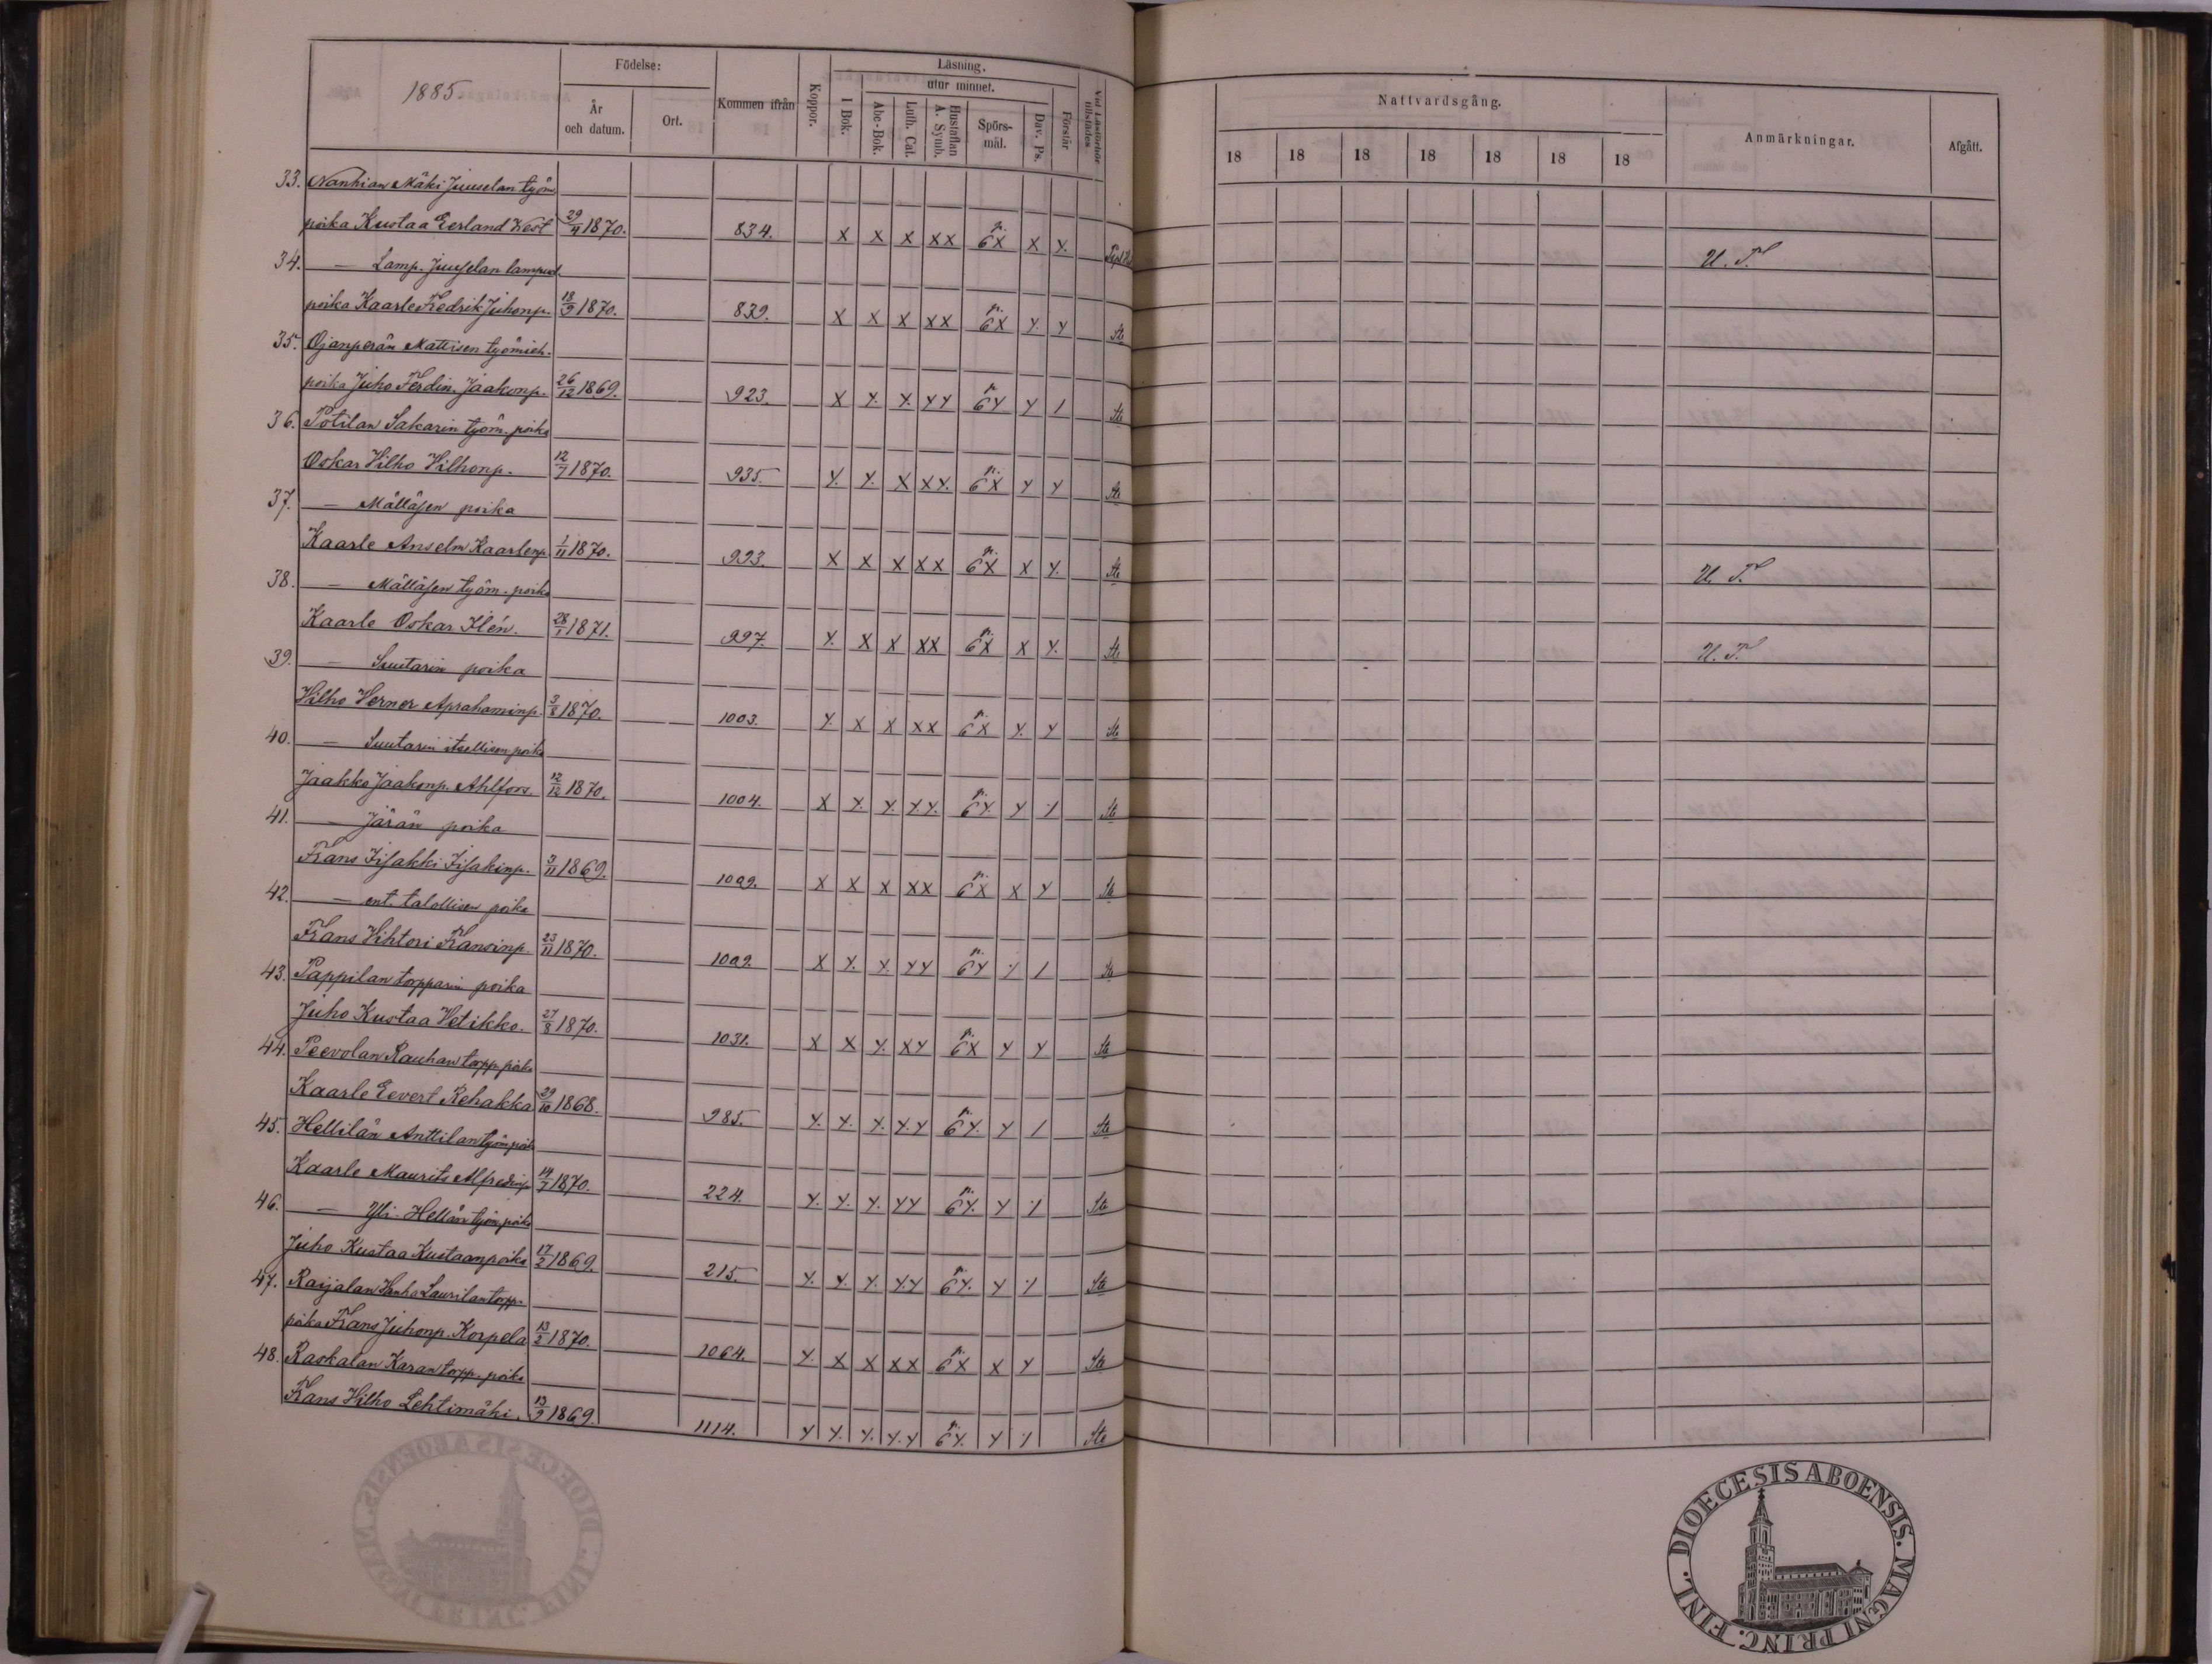 1885.
Födelse:
År och datum.
Ort.
Kommen ifrån
Koppor.
Läsning.
I Bok.
utur minnet.
Abc-Bok.
Luth. Cat.
Hustaflan A. Symb.
Spörsmål.
Dav. Ps.
Förstår
Vid Läsförhör tillstädes
Nattvardsgång.
18 18 18 18 18 18 18
Anmärkningar.
Afgått.
33. Nanhian Mäki Juuselan työm.
poika Kustaa Eerland West 29/11 1870. 834. X X X XX 6X X Y.
U. T.
34. — Lamp. Juuselan lampuod.
poika Kaarle Fredrik Juhonp. 18/9 1870. 839. X X X XX 6X Y. Y Ste
35. Ojanperän Mattisen työmieh.
poika Juho Ferdin. Jaakonp. 26/12 1869. 923. X Y. Y. YY 6Y Y / Ste
36. Potilan Sakarin työm. poika
Oskar Vilho Vilhonp. 12/7 1870. 935. Y. Y. X XY. 6X Y Y Ste
37. — Mälläsen poika
Kaarle Anselm Kaarlenp. 1/11 1870. 993. X X X XX 6X X Y. Ste
U. T.
38. — Mälläsen työm. poika
Kaarle Oskar Ilén. 28/1 1871. 997. Y. X X XX 6X X Y. Ste
U. T.
39. — Suutarin poika
Vilho Verner Aprahaminp. 3/8 1870. 1003. Y. X X XX 6X Y. Y Ste
40. — Suutarin itsellisen poika
Jaakko Jaakonp. Ahlfors. 12/12 1870. 1004. X Y. Y. Y.Y. 6Y. Y / Ste
41. — Järän poika
Frans Iisakki Iisakinp. 3/11 1869. 1009. X X X XX 6X X Y Ste
42. — ent. talollisen poika
Frans Vihtori Fransinp. 23/11 1870. 1009. X Y. Y. YY 6Y / / Ste
43. Pappilan torpparin poika
Juho Kustaa Vetikko. 27/8 1870. 1031. X X Y. XY 6X Y Y Ste
44. Peevolan Rauhan torpp. poika
Kaarle Eevert Rehakka 29/10 1868. 985. Y. Y. Y. Y.Y 6Y. Y / Ste
45. Hellilän Anttilan työm. poika
Kaarle Maurits Alfredinp. 14/7 1870. 224. Y. Y. Y. YY 6Y. Y / Ste
46. — Yli-Hellän työm. poika
Juho Kustaa Kustaanpoika 17/2 1869. 215. Y. Y. Y. Y.Y 6Y. Y / Ste
47. Raijalan Vanha Laurilan torpp.
poika Frans Juhonp. Korpela 13/2 1870. 1064. Y. X X XX 6X X Y Ste
48. Raskalan Karan torpp. poika
Frans Vilho Lehtimäki. 13/9 1869. 1114. Y Y. Y. Y.Y 6Y. Y / Ste
DIOECESIS ABOENSIS. MAGNI PRINC. FINL.